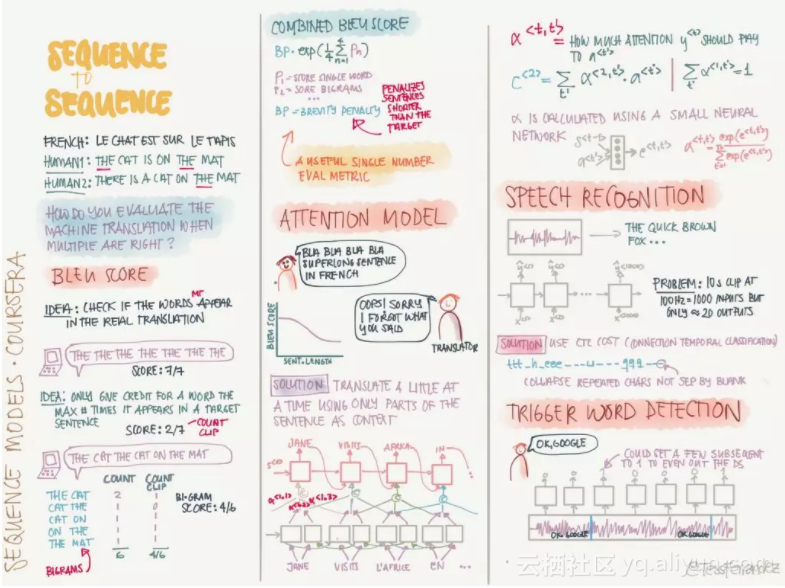 SEQUENCE MODELS · COURSERA
SEQUENCE
to
SEQUENCE
FRENCH: LE CHAT EST SUR LE TAPIS
HUMAN1: THE CAT IS ON THE MAT
HUMAN2: THERE IS A CAT ON THE MAT
HOW DO YOU EVALUATE THE
MACHINE TRANSLATION WHEN
MULTIPLE ARE RIGHT?
BLEU SCORE
IDEA: CHECK IF THE WORDS MT APPEAR
IN THE REAL TRANSLATION
THE THE THE THE THE THE THE
SCORE: 7/7
IDEA: ONLY GIVE CREDIT FOR A WORD THE
MAX # TIMES IT APPEARS IN A TARGET
SENTENCE
SCORE: 2/7 COUNT
CLIP
THE CAT THE CAT ON THE MAT
COUNT COUNT
CLIP
THE CAT 2 1
CAT THE 1 0
CAT ON 1 1
ON THE 1 1
THE MAT 1 1
6 4/6
BI-GRAM
SCORE: 4/6
BIGRAMS
COMBINED BLEU SCORE
BP · exp(1/4 Σ Pn)
P1 = SCORE SINGLE WORD
P2 = SCORE BIGRAMS
...
BP = BREVITY PENALTY
PENALIZES
SENTENCES
SHORTER
THAN THE
TARGET
A USEFUL SINGLE NUMBER
EVAL METRIC
ATTENTION MODEL
BLA BLA BLA BLA
SUPERLONG SENTENCE
IN FRENCH
OOPS! SORRY
I FORGOT WHAT
YOU SAID
TRANSLATOR
BLEU SCORE
SENT. LENGTH
SOLUTION TRANSLATE A LITTLE AT
A TIME USING ONLY PARTS OF THE
SENTENCE AS CONTEXT
JANE VISITS AFRICA IN ...
JANE VISITE L'AFRICE EN ...
α<t,t'> = HOW MUCH ATTENTION y<t> SHOULD PAY
TO a<t'>
C<2> = Σ α<2,t'> · a<t'> | Σ α<1,t'> = 1
α IS CALCULATED USING A SMALL NEURAL
NETWORK
s<t-1>
a<t'>
e<t,t'>
SPEECH RECOGNITION
THE QUICK BROWN
FOX ...
PROBLEM: 10s CLIP AT
100HZ = 1000 INPUTS BUT
ONLY ≈ 20 OUTPUTS
SOLUTION USE CTC COST (CONNECTION TEMPORAL CLASSIFICATION)
ttt_h_eee---⊔---qqq---
COLLAPSE REPEATED CHARS NOT SEP BY BLANK
TRIGGER WORD DETECTION
OK, GOOGLE
COULD SET A FEW SUBSEQUENT
TO 1 TO EVEN OUT THE DS
OK, GOOGLE OK, GOOGLE
云栖社区 yq.aliyun.com